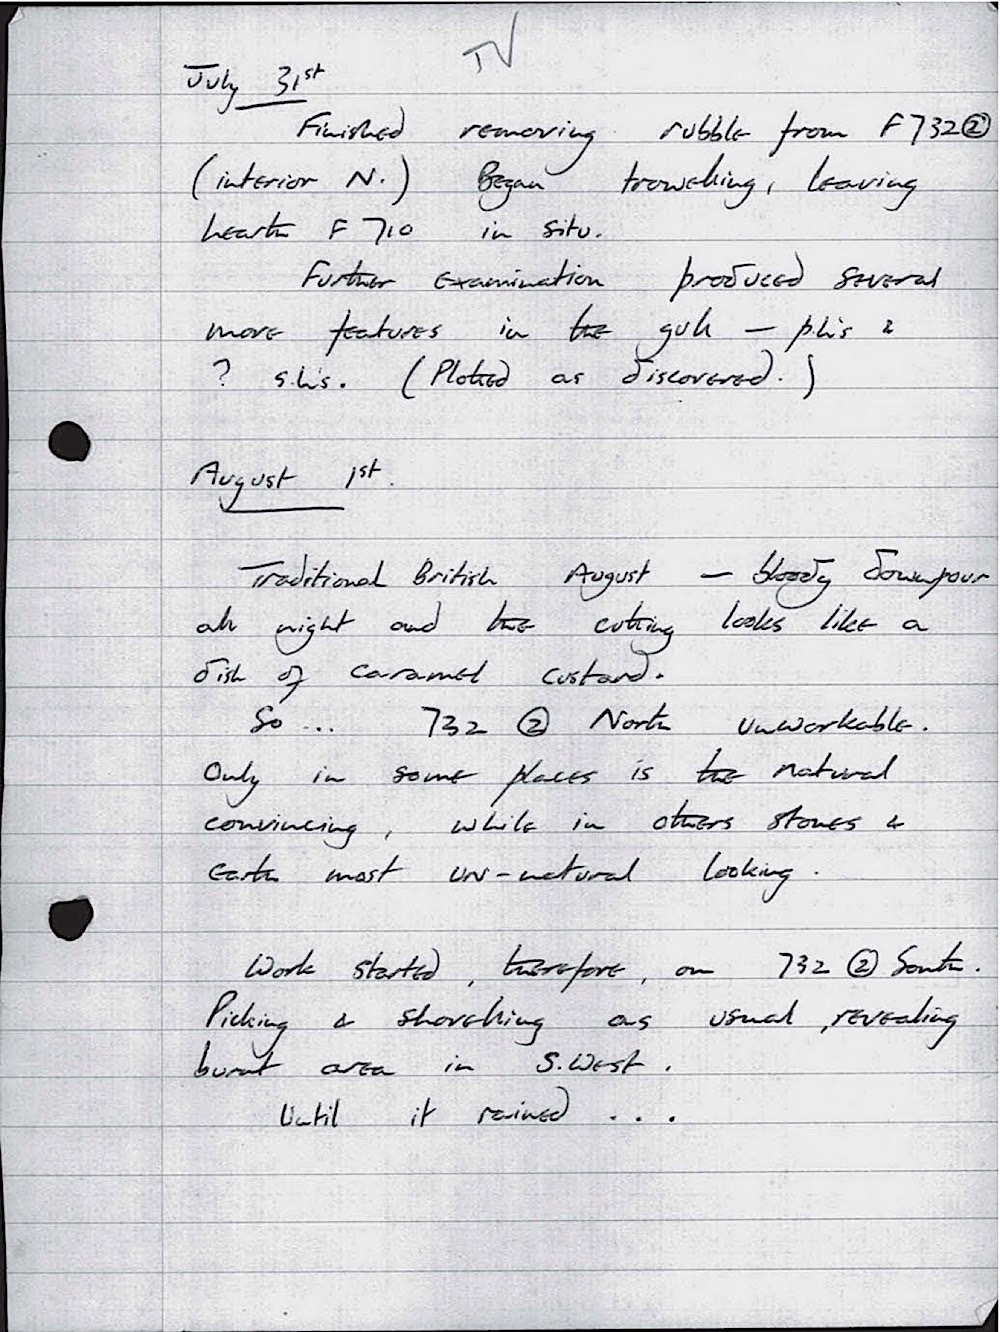 TV
July 31st
Finished removing rubble from F732②
(interior N.) Began trowelling, leaving
hearth F710 in situ.
Further examination produced several
more features in the gull – p.h's &
? s.h's. (Plotted as discovered.)
August 1st.
Traditional British August – bloody downpour
all night and the cutting looks like a
dish of caramel custard.
So ... 732 ② North unworkable.
Only in some places is the natural
convincing, while in others stones &
earth most un-natural looking.
Work started, therefore, on 732 ② South.
Picking & shovelling as usual, revealing
burnt area in S.West.
Until it rained ...